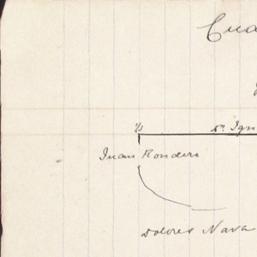 Cua
1/2 Dn. Ign
Juan Rondero
Dolores Nava